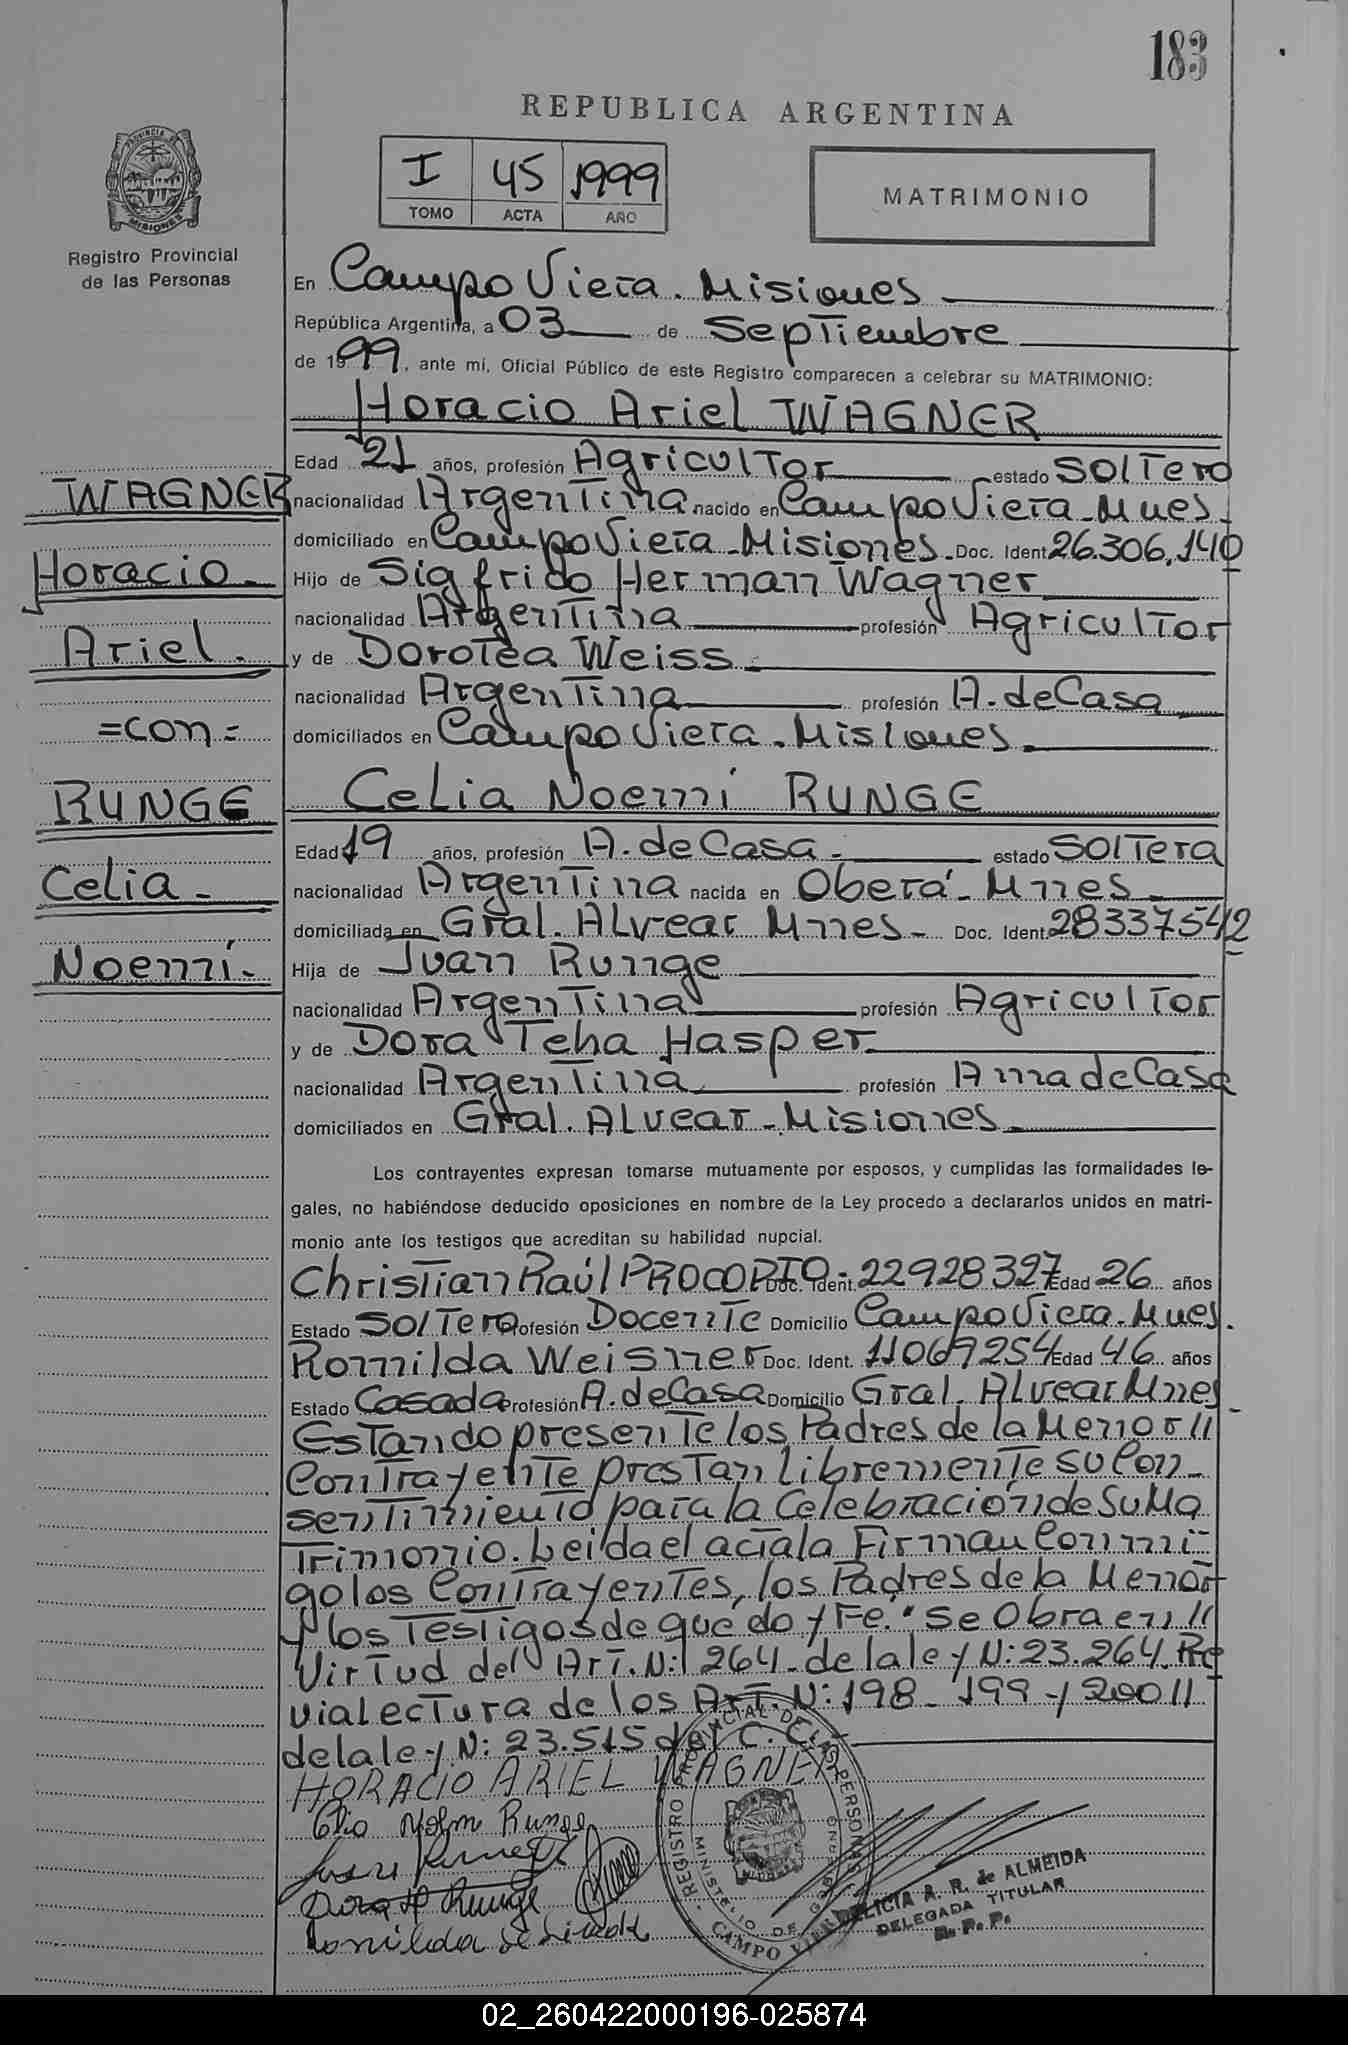 183
REPUBLICA ARGENTINA
I 45 1999
TOMO ACTA AÑO
MATRIMONIO
PROVINCIA DE MISIONES
Registro Provincial
de las Personas
En Campo Viera. Misiones
República Argentina, a 03 de Septiembre
de 1999, ante mí, Oficial Público de este Registro comparecen a celebrar su MATRIMONIO:
Horacio Ariel WAGNER
Edad 21 años, profesión Agricultor estado Soltero
WAGNER
nacionalidad Argentina nacido en Campo Viera - Mnes.
domiciliado en Campo Viera - Misiones. Doc. Ident. 26.306.140
Horacio
Hijo de Sigfrido Herman Wagner
nacionalidad Argentina profesión Agricultor
Ariel.
y de Dorotea Weiss
nacionalidad Argentina profesión A. de Casa
=con=
domiciliados en Campo Viera - Misiones
RUNGE
Celia Noemí RUNGE
Edad 19 años, profesión A. de Casa - estado Soltera
Celia -
nacionalidad Argentina nacida en Oberá - Mnes
domiciliada en Gral. Alvear Mnes - Doc. Ident. 28337542
Noemí -
Hija de Juan Runge
nacionalidad Argentina profesión Agricultor
y de Dora Teha Hasper
nacionalidad Argentina profesión Ama de Casa
domiciliados en Gral. Alvear - Misiones
Los contrayentes expresan tomarse mutuamente por esposos, y cumplidas las formalidades le-
gales, no habiéndose deducido oposiciones en nombre de la Ley procedo a declararlos unidos en matri-
monio ante los testigos que acreditan su habilidad nupcial.
Christian Raúl PROCOPIO - Doc. Ident. 22928327 Edad 26 años
Estado Soltero Profesión Docente Domicilio Campo Viera. Mnes.
Romilda Weisner Doc. Ident. 11069254 Edad 46 años
Estado Casada Profesión A. de Casa Domicilio Gral. Alvear Mnes -
Estando presente los Padres de la Menor //
Contrayente prestan libremente su Con-
sentimiento para la Celebración de su Ma
trimonio. Leida el acta la Firman Conmi-
go los Contrayentes, los Padres de la Menor
y los Testigos de que doy Fe." Se Obra en //
Virtud del Art. N: 264 - de la ley N: 23.264. Pre
via lectura de los Art. N: 198 - 199 y 200 //
de la ley N: 23.515 del C. C.
HORACIO ARIEL WAGNER
Runge
REGISTRO PROVINCIAL DE LAS PERSONAS
MINISTERIO DE GOBIERNO
CAMPO VIERA
Dora H Runge
Romilda
DELICIA A. R. de ALMEIDA
DELEGADA TITULAR
R. P. P.
02_260422000196-025874